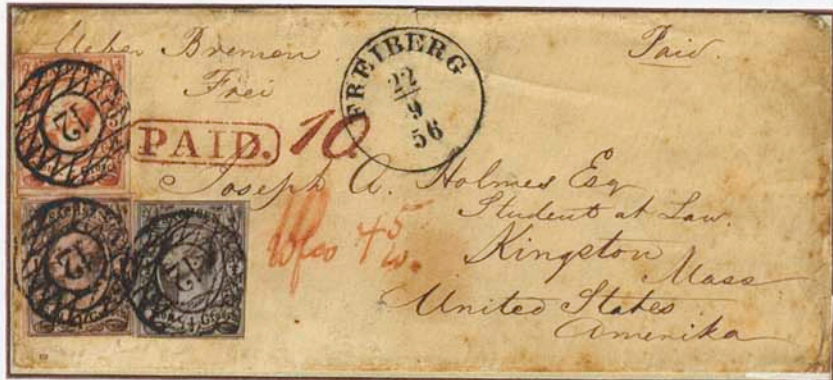 Ueber Bremen
Frei
Paid.
FREIBERG
22
9
56
PAID. 10
Joseph A. Holmes Esq
Student at Law.
Kingston
Mass
United States
Amerika
12
12
12